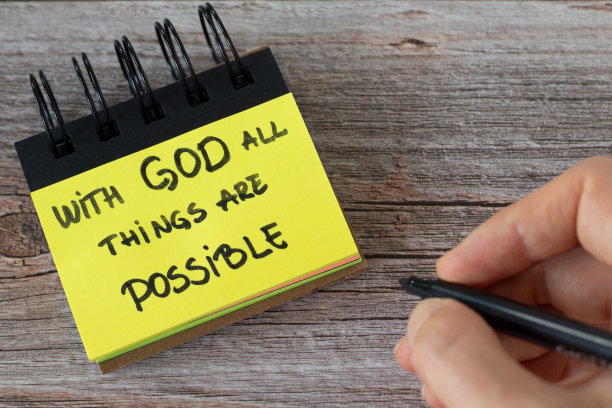 WITH GOD ALL
THINGS ARE
POSSIBLE